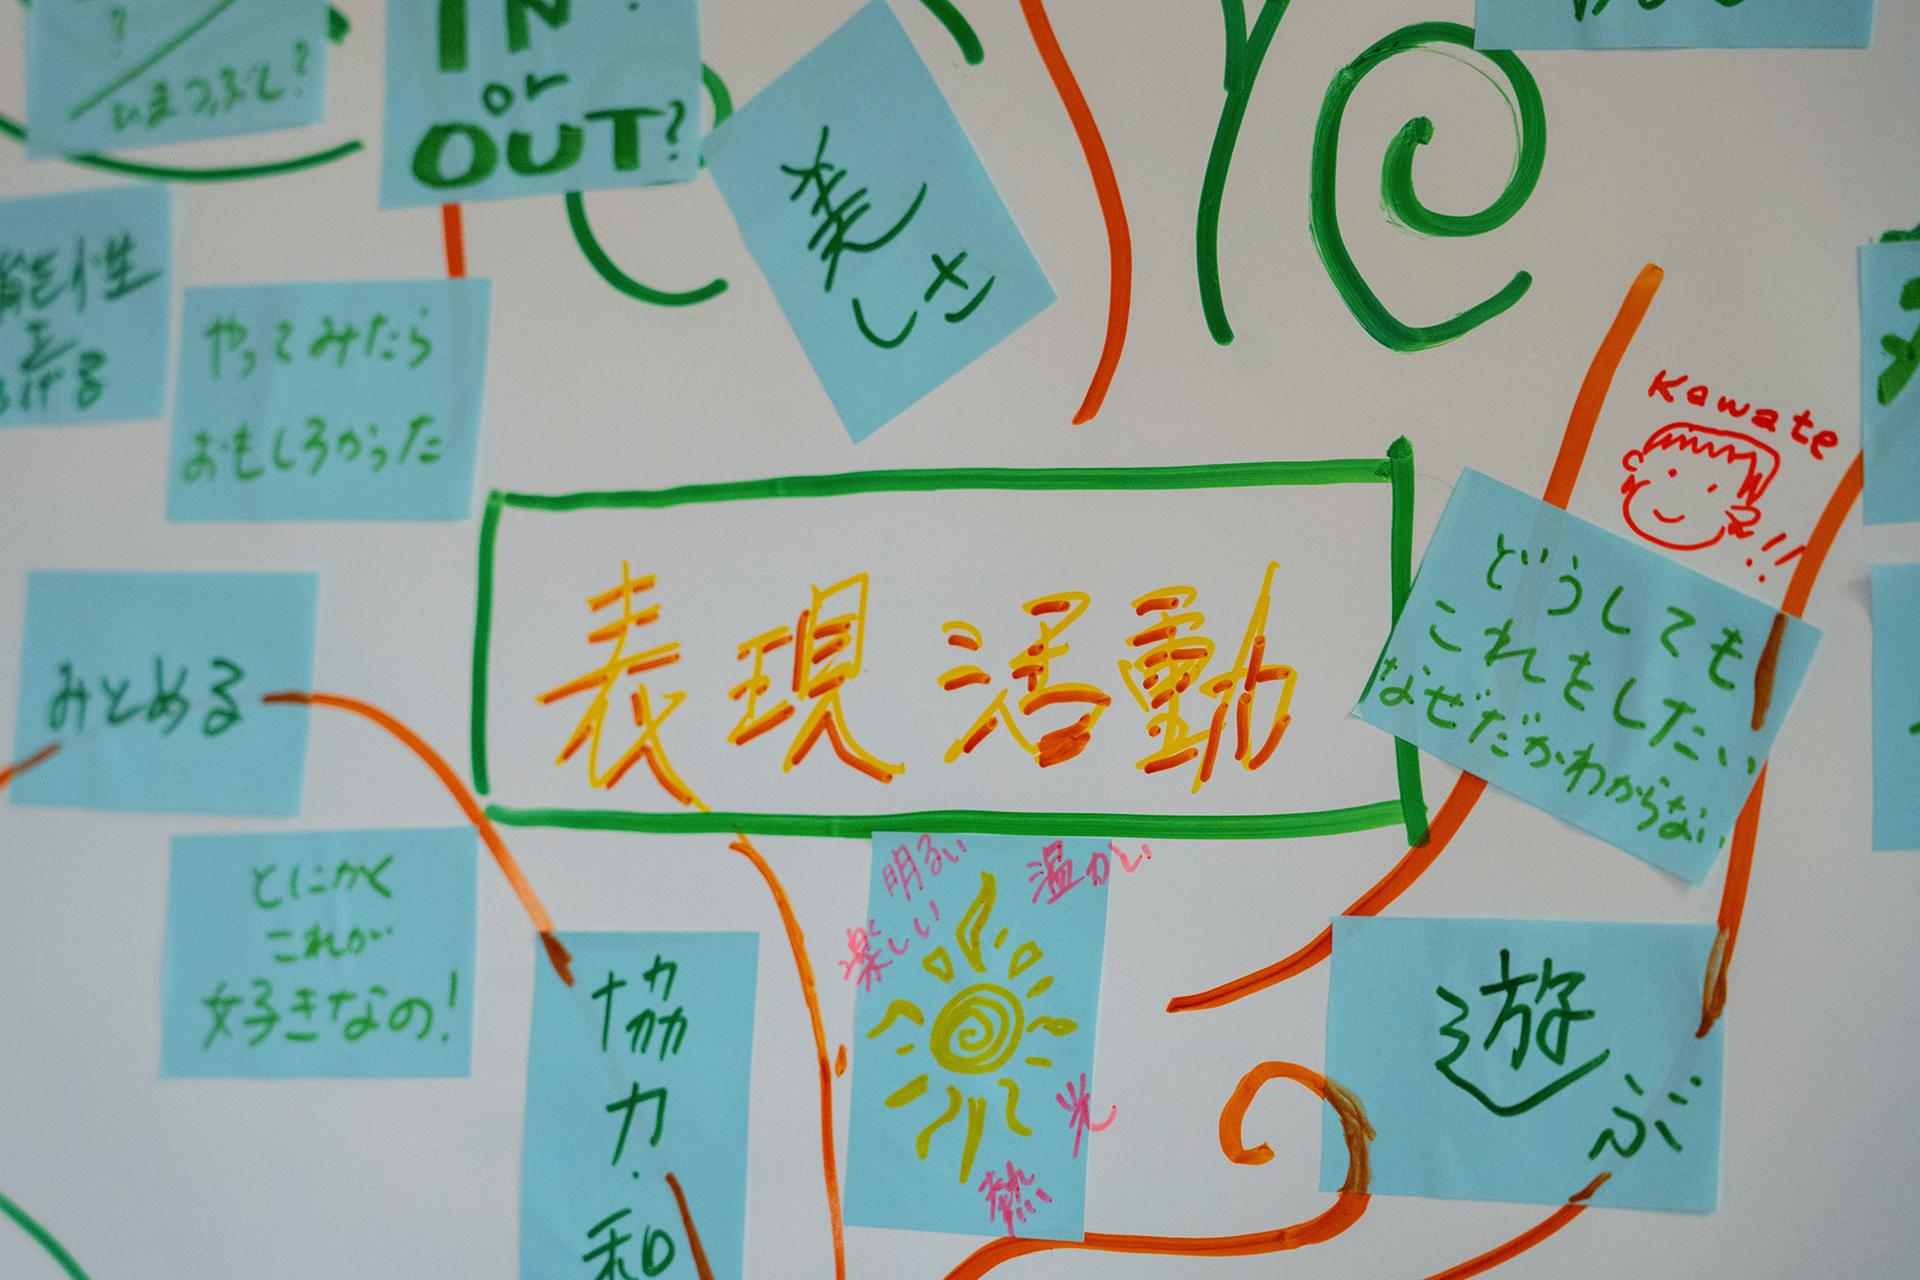 ?
ひまつぶし?
IN
or
OUT?
美
しさ
能性
を
げる
やってみたら
おもしろかった
Kawate
!!
表現活動
どうしても
これをしたい
なぜだかわからない
みとめる
とにかく
これが
好きなの!
協
力・
和
明るい
温かい
楽しい
光
熱
遊
ぶ